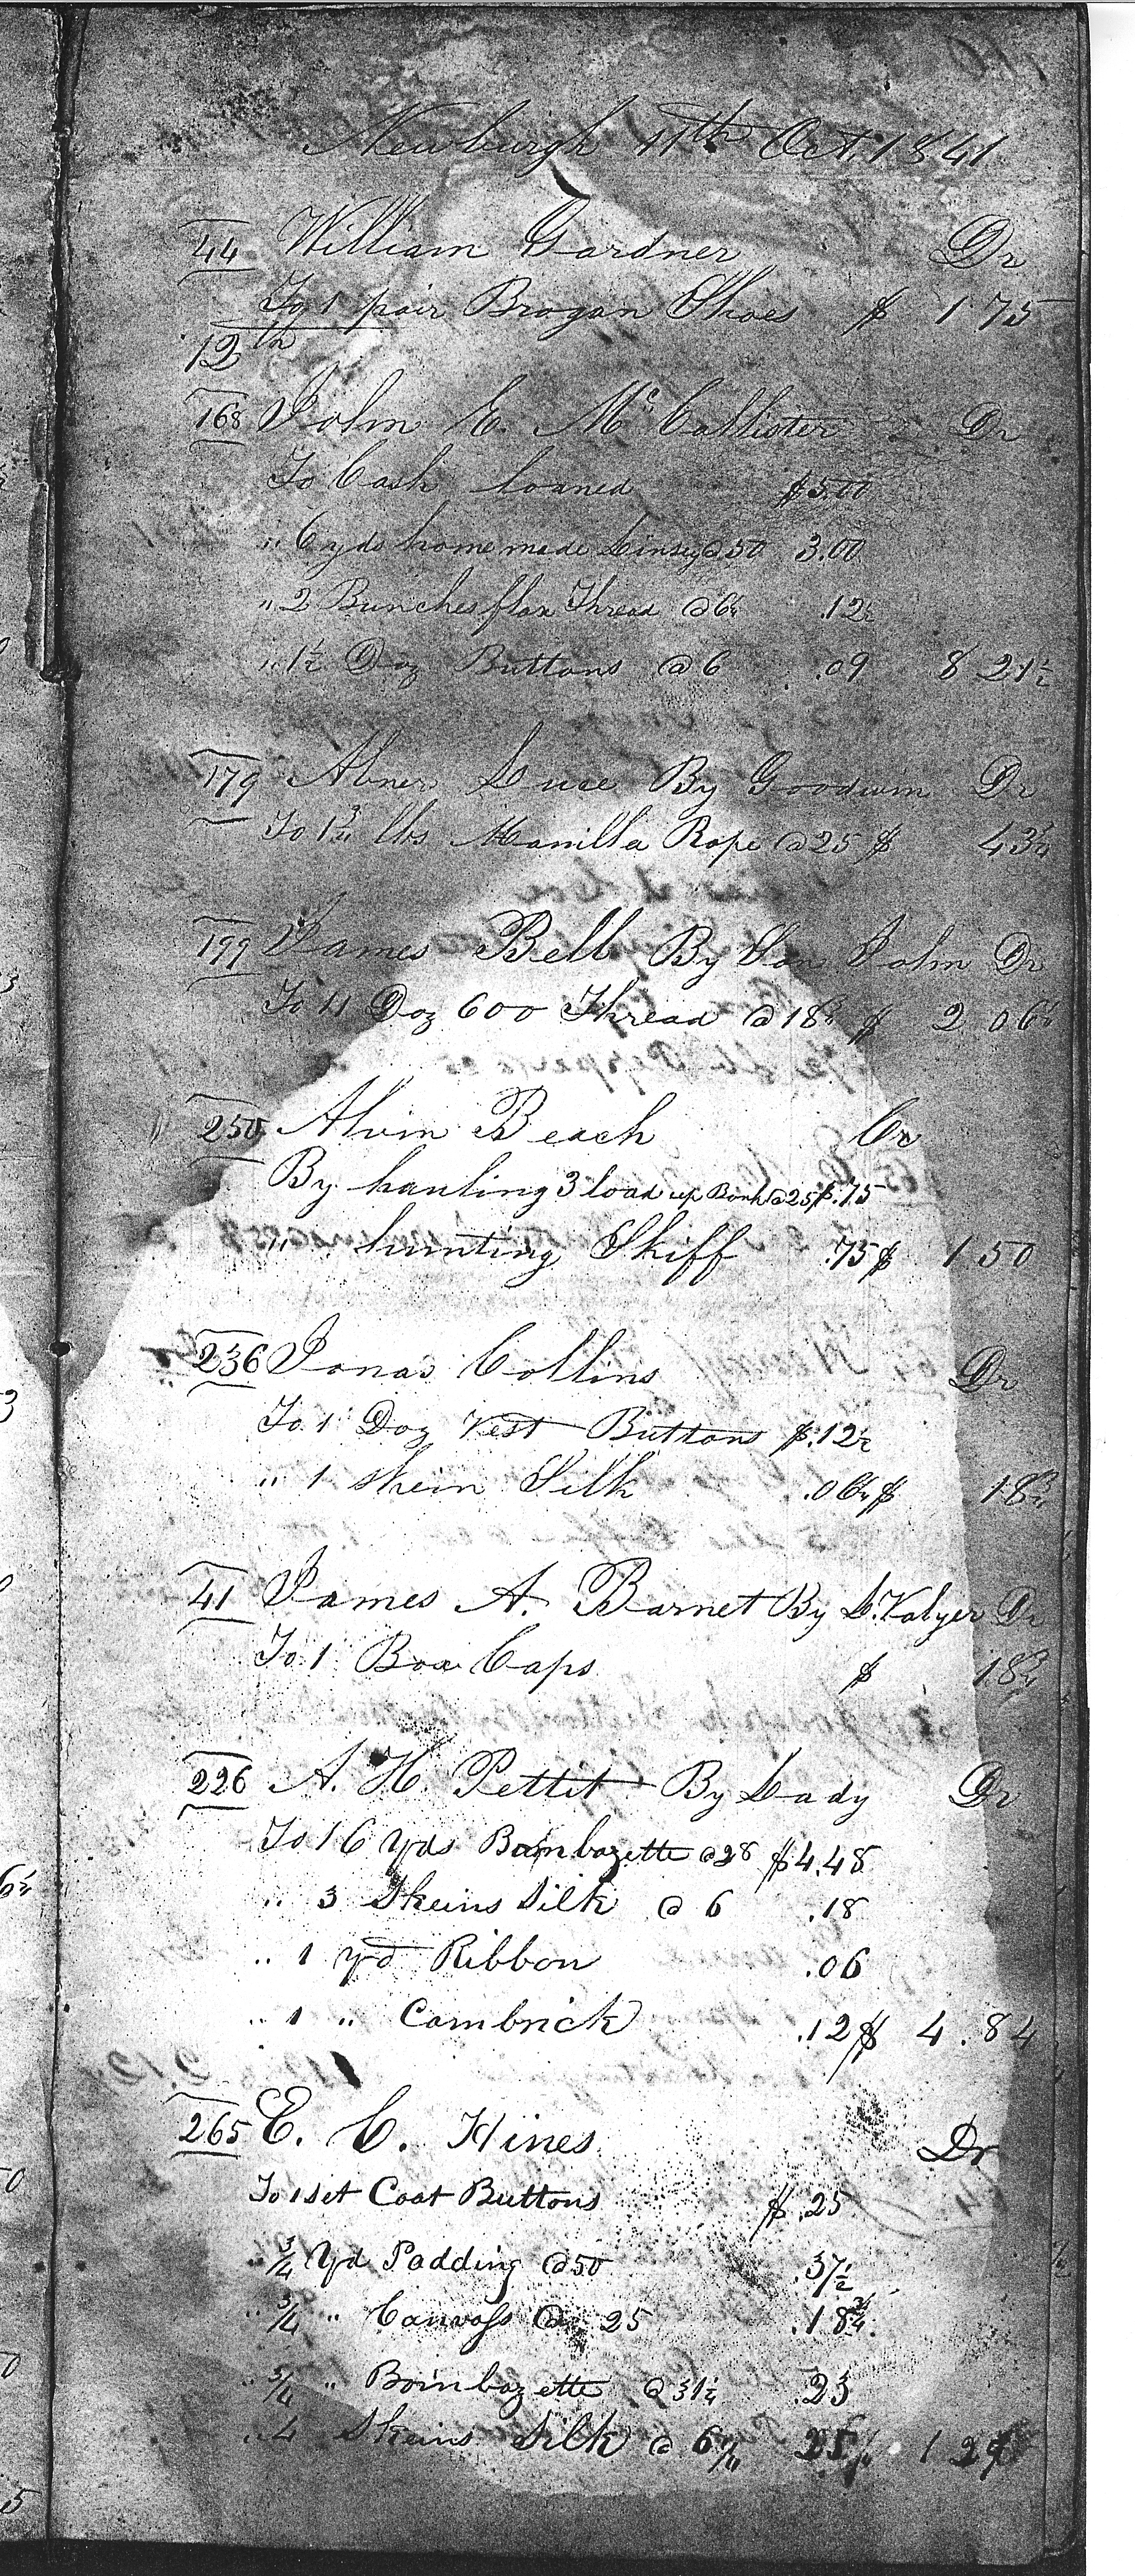 Newburgh 11th Oct. 1841
44 William Gardner Dr
To 1 pair Brogan Shoes $ 1 75
12th
168 John E. McCallister Dr
To Cash loaned $5.00
" 6 yds home made Linsey @ 50 3.00
" 2 Bunches flax Thread @ 6¼ .12½
" 1½ Doz Buttons @ 6 .09 8 21½
179 Abner Luce By Goodwin Dr
To 1¾ lbs Manilla Rope @ 25 $ 43¾
199 James Bell By Son John Dr
To 11 Doz 600 Thread @ 18¾ $ 2 06¼
250 Alvin Beach Cr
By hauling 3 load up Bank @ 25 $.75
" hunting Skiff .75 $ 1 50
236 Jonas Collins Dr
To 1 Doz Vest Buttons $.12½
" 1 skein Silk .06¼ $ 18¾
41 James A. Barnet By L. Valyer Dr
To 1 Box Caps $ 18¾
226 A. H. Pettit By Lady Dr
To 16 Yds Bombazette @ 28 $4.48
" 3 Skeins Silk @ 6 .18
" 1 yd Ribbon .06
" 1 " Cambrick .12 $ 4.84
265 E. C. Hines Dr
To 1 set Coat Buttons $ .25
" ¾ Yd Padding @ 50 .37½
" ¾ " Canvass @ 25 .18¾
" ¾ " Bombazette @ 31¼ .23
" 4 Skeins Silk @ 6¼ 25 1 29